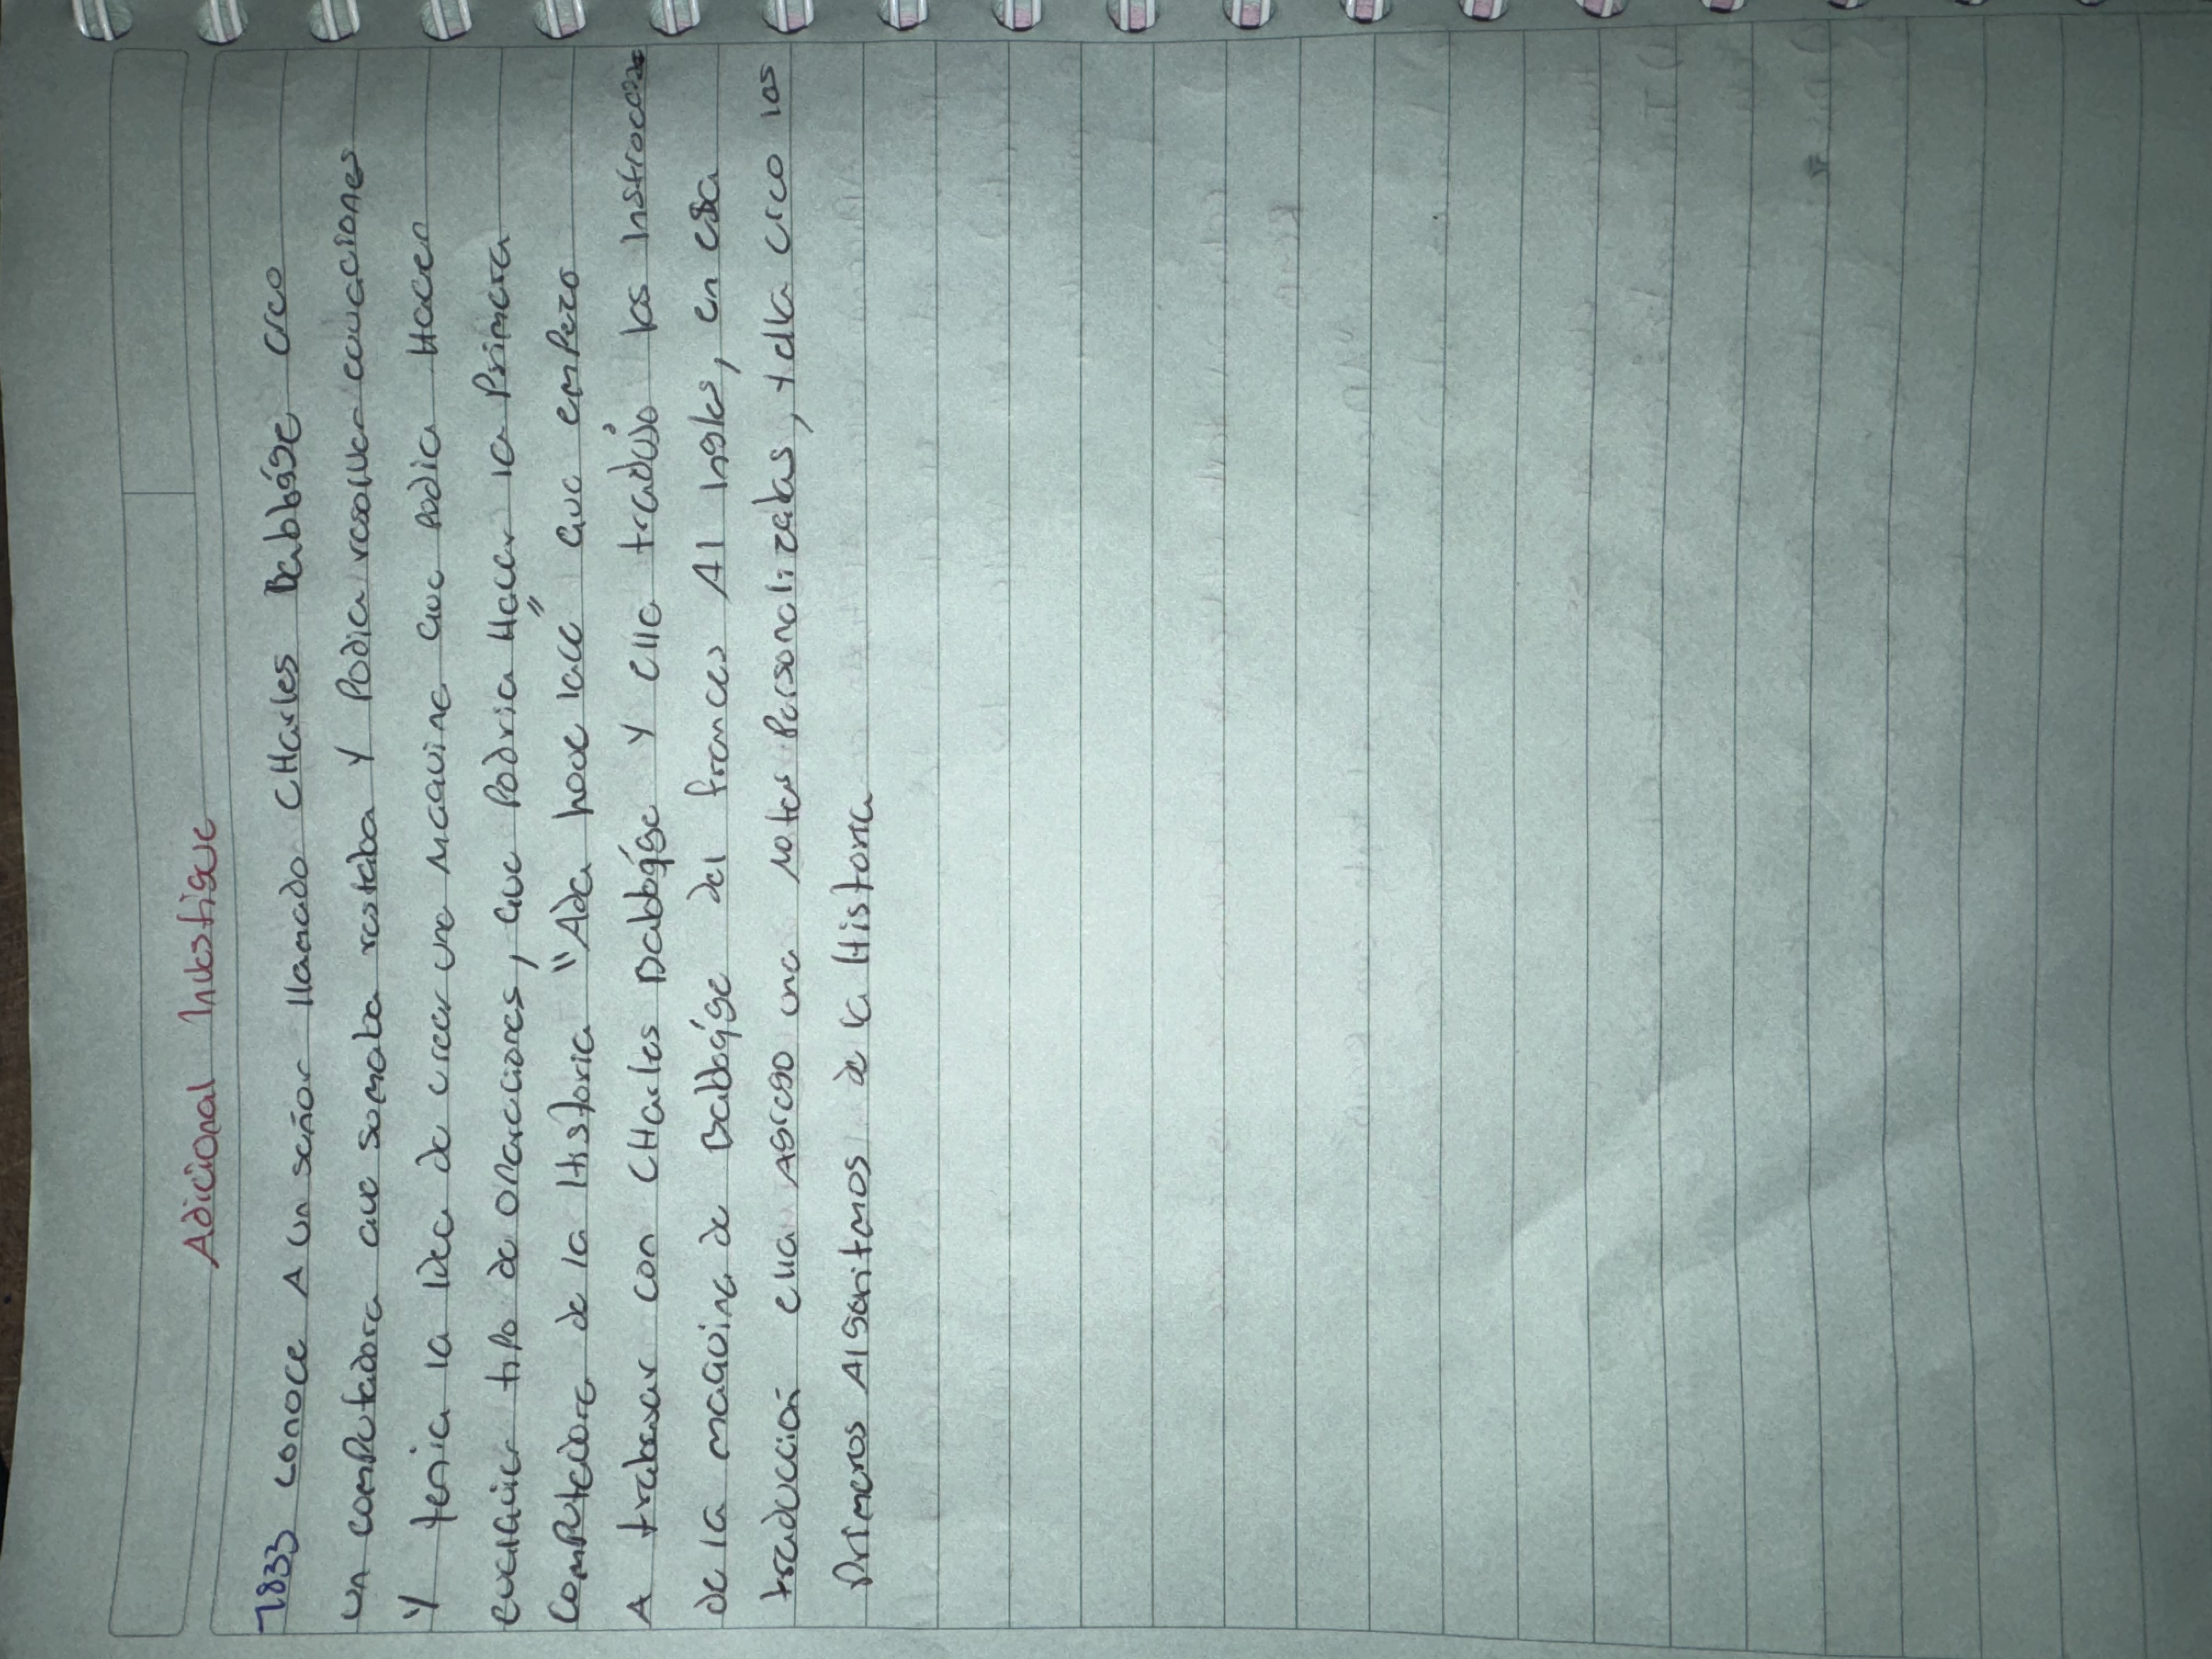 Adicional Investigue
1833 conoce A un señor llamado CHarles Babbáge creo
un computadora que sumaba restaba y Podia resolver ecuaciones
Y tenia la idea de crear una maquina que podia Hacer
cualquier tipo de operaciones, que Podria Hacer la Primera
computadora de la Historia "Ada" que empezo
A trabajar con CHarles Babbáge y ella tradujo las
de la maquina de Babbáge del frances Al ingles, en esa
traducción ella Agrego una notas Personalizadas, y ella creo los
Primeros Algoritmos de la Historia